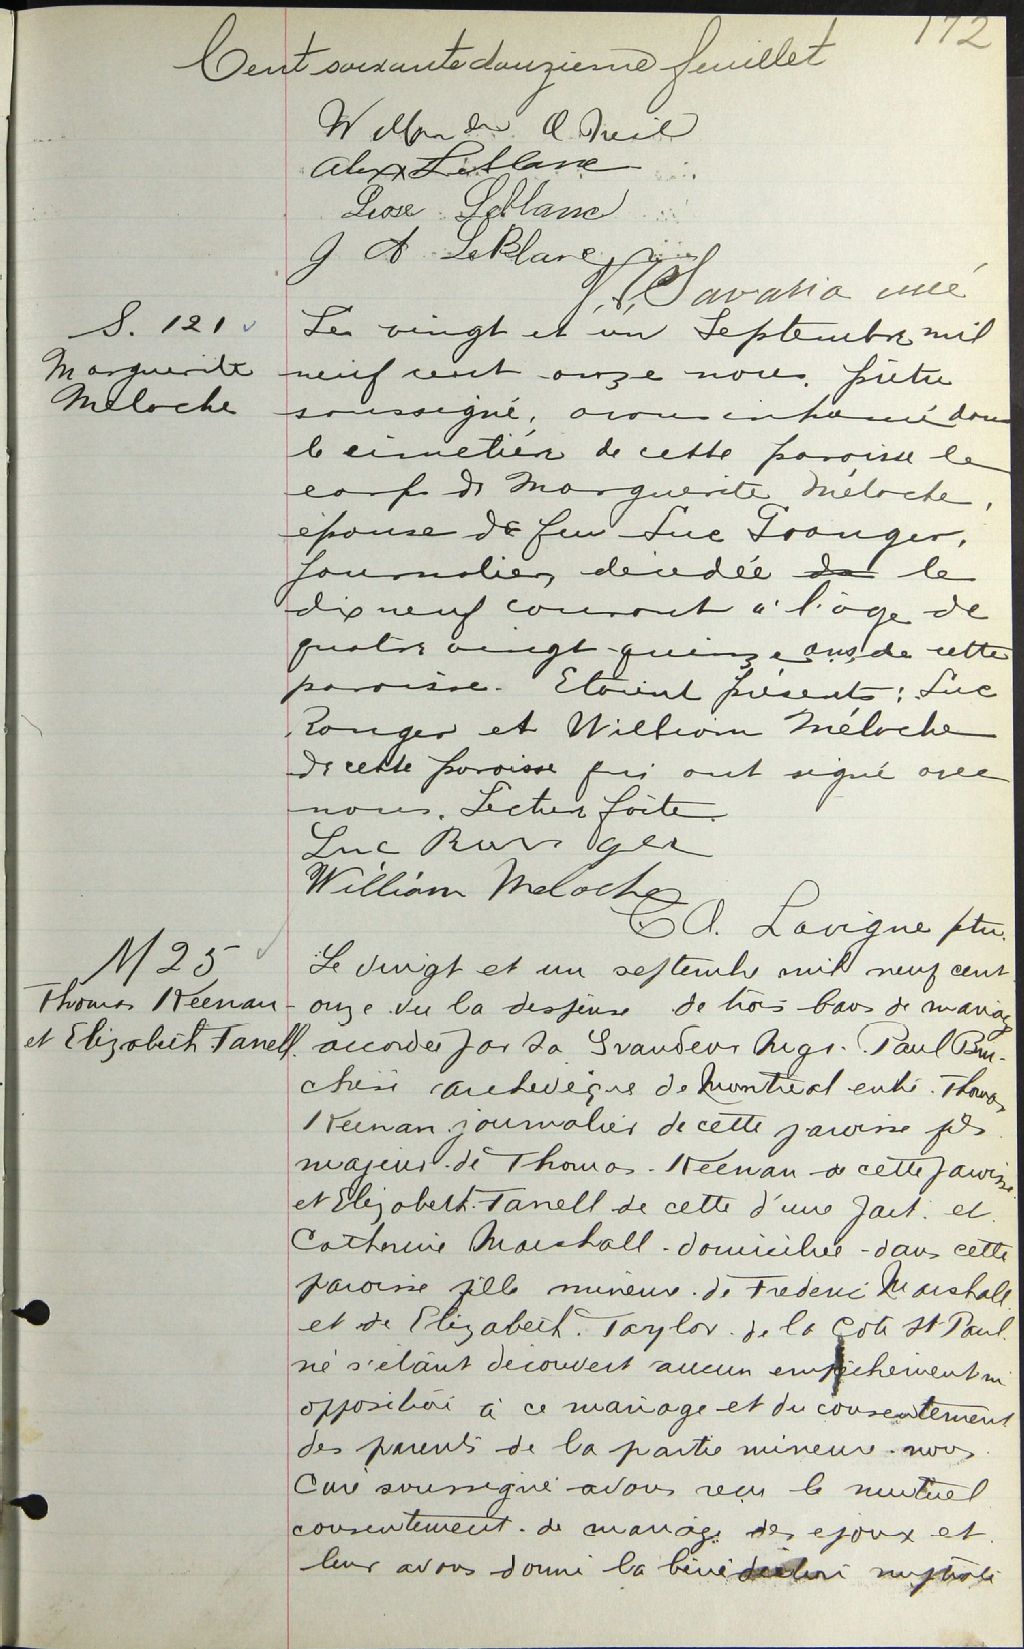 172
Cent soixante douzieme feuillet
Alex Leblanc
Leblanc
J A LeBlanc
J. A. Savaria curé
S. 121
Marguerite
Méloche
Le vingt et un Septembre mil
neuf cent onze nous, prêtre
soussigné, avons inhumé dans
le cimetière de cette paroisse le
corps de Marguerite Méloche,
épouse de feu Luc Granger,
journalier, décédée de le
dix neuf courant à l'âge de
quatre vingt-quinze ans, de cette
paroisse. Etaient présents: Luc
Ranger et William Méloche
de cette paroisse qui ont signé avec
nous. Lecture faite.
Luc Ranger
William Meloche
C. A. Lavigne ptre.
M 25
Thomas Keenan
et Elizabeth Tarrell.
Le vingt et un septembre mil neuf cent
onze vu la dispense de trois bans de mariage
accordée par Sa Grandeur Mgr. Paul Bru-
chési archevêque de Montréal entre Thomas
Keenan journalier de cette paroisse fils
majeur de Thomas Keenan de cette paroisse
et Elizabeth Tarrell de cette d'une part et
Catherine Marshall domiciliée dans cette
paroisse fille mineure de Frederic Marshall
et de Elizabeth Taylor de la Cote St Paul.
ne s'étant découvert aucun empêchement ni
opposition à ce mariage et du consentement
des parents de la partie mineure nous
Curé soussigné avons reçu le mutuel
consentement de mariage des epoux et
leur avons donné la bénédiction nuptiale